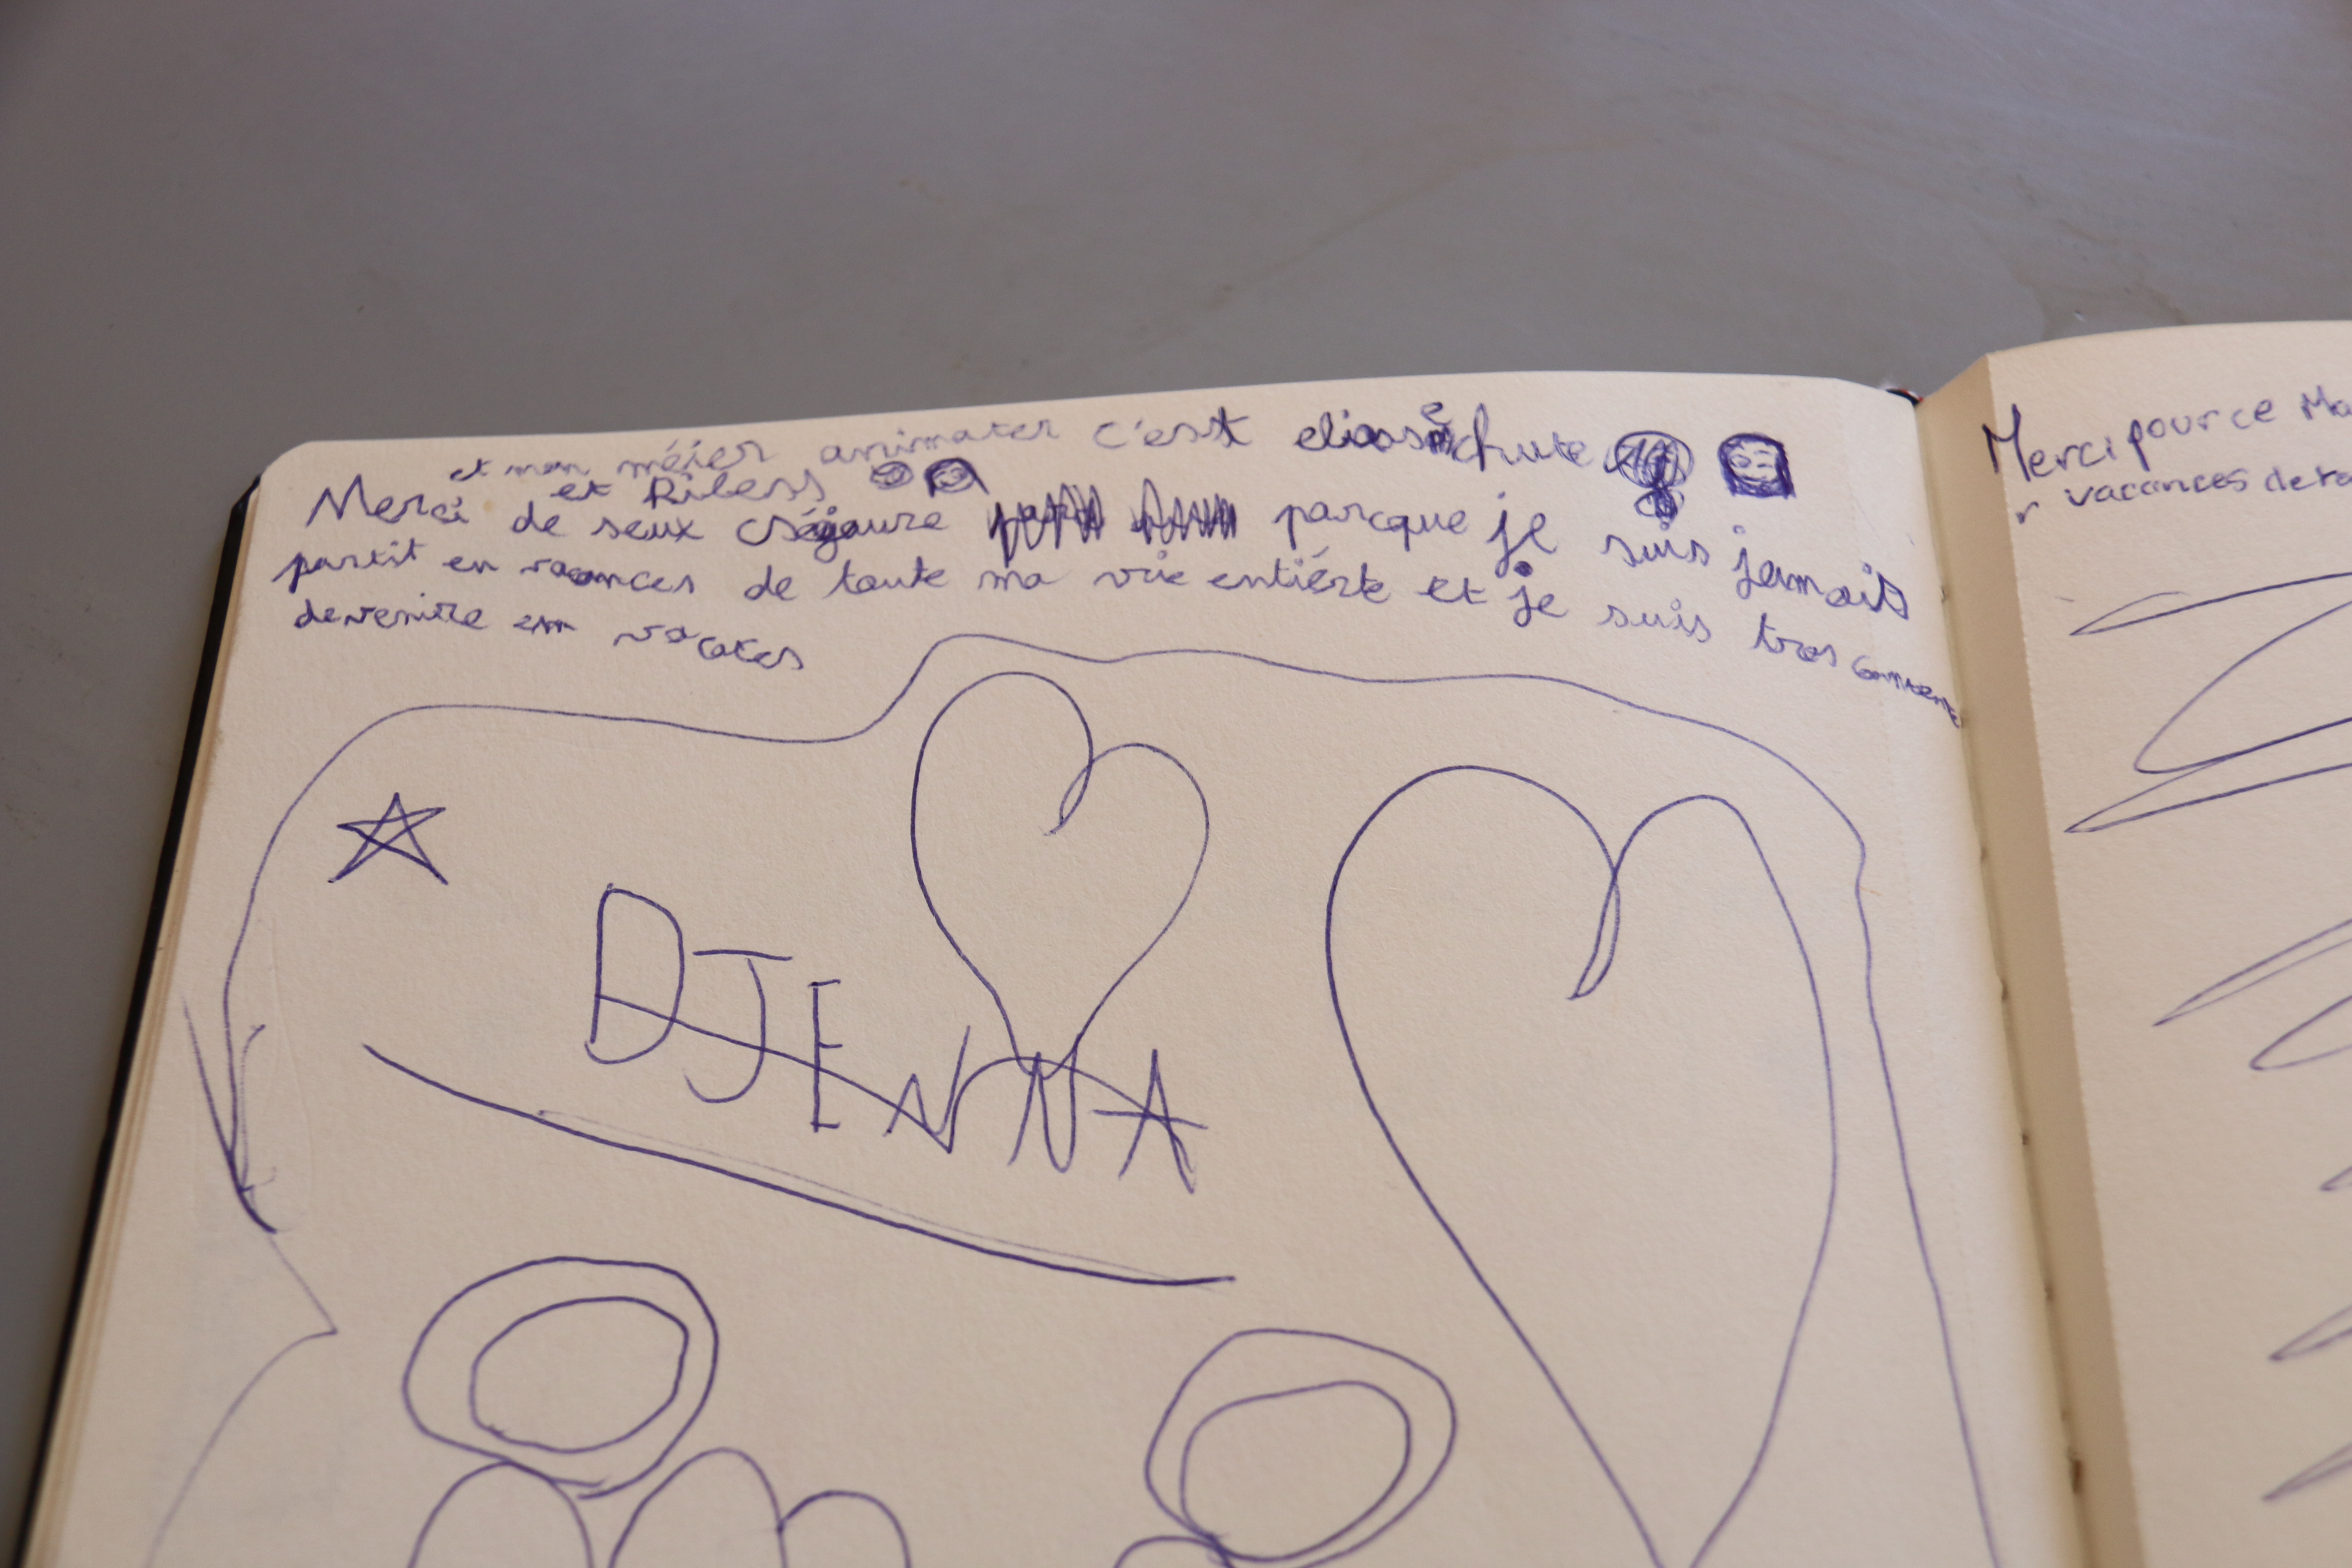 et mon méier animater c'est eliass chute
et Riless
Merci de seux séjoure parcque je suis jamait
partit en vacances de toute ma vie entiérte et je suis tres contente
devenire em vacaces
DJENNA
Merci pour ce Ma
vacances de ra